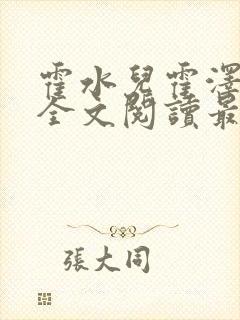 霍水兒霍澤
全文閱讀最
張大同